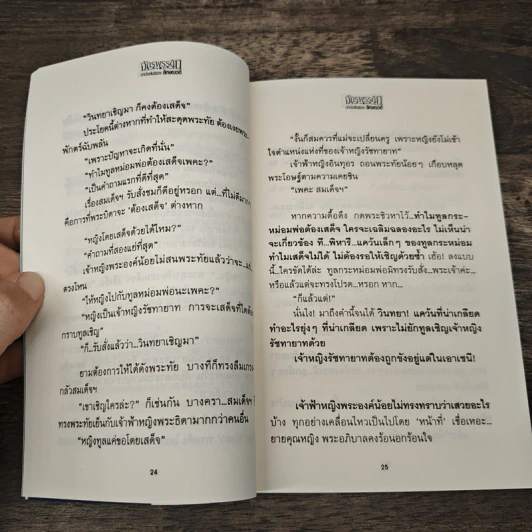 "วินทยาเชิญมา ก็คงต้องเสด็จ"
ประโยคนี้ต่างหากที่ทำให้สะดุดพระทัย ต้องเงยพระ-
พักตร์ฉับพลัน
"เพราะปัญหาจะเกิดที่นั่น"
"ทำไมทูลหม่อมพ่อต้องเสด็จเพคะ?"
"เป็นคำถามแรกที่ดีที่สุด"
เรื่องสมเด็จฯ รับสั่งชมก็ดีอยู่หรอก แต่...ที่ไม่ดีมาก
คือการที่พระบิดาจะ 'ต้องเสด็จ' ต่างหาก
"หญิงโดยเสด็จด้วยได้ไหม?"
"คำถามที่สองแย่ที่สุด"
เจ้าฟ้าหญิงพระองค์น้อยไม่สนพระทัยแล้วว่าจะ...
ตรงไหน
"ให้หญิงไปกับทูลหม่อมพ่อนะเพคะ?"
"หญิงเป็นเจ้าหญิงรัชทายาท การจะเสด็จที่ใดต้อง
กราบทูลเชิญ"
"ก็..รับสั่งแล้วว่า...วินทยาเชิญมา"
ยามต้องการให้ได้ดังพระทัย บางทีก็ทรงลืม
กลัวสมเด็จฯ
"เขาเชิญใครล่ะ?" ก็เช่นกัน บางครา...สมเด็จฯ
ทรงพระทัยเย็นกับเจ้าฟ้าหญิงพระธิดามากกว่าคนอื่น
"หญิงทูลแค่ขอโดยเสด็จ"
24
"งั้นก็สมควรที่แม่จะเปลี่ยนครู เพราะหญิงยังไม่เข้า
ใจตำแหน่งแห่งที่ของเจ้าหญิงรัชทายาท"
เจ้าฟ้าหญิงอินทุอร ถอนพระทัยน้อยๆ เกือบหลุด
พระโอษฐ์ตามความเคยชิน
"เพคะ สมเด็จฯ"
หากความดื้อดึง กดพระชิวหาไว้ ทำไมทูลกระ-
หม่อมพ่อต้องเสด็จ ใครจะเฉลิมฉลองอะไร ไม่เห็นน่า
จะเกี่ยวข้อง ที...พิหารี...แคว้นเล็กๆ ของทูลกระหม่อม
ทำไมเสด็จไม่ได้ ไม่ต้องรอให้เชิญด้วยซ้ำ เฮ้อ! ลงแบบ
นี้...ใครขัดได้ล่ะ ทูลกระหม่อมพ่อมีทรงรับสั่ง...พระเจ้าค่ะ...
หรือแล้วแต่จะทรงโปรด...หรอก หาก...
"ก็แล้วแต่!"
นั่นไง! มาถึงคำนี้จนได้ วินทยา! แคว้นที่น่าเกลียด
ทำอะไรยุ่งๆ ที่น่าเกลียด เพราะไม่ยักทูลเชิญเจ้าหญิง
รัชทายาทด้วย
เจ้าหญิงรัชทายาทต้องถูกขังอยู่แต่ในเอาเชนี!
เจ้าฟ้าหญิงพระองค์น้อยไม่ทรงทราบว่าเสวยอะไร
บ้าง ทุกอย่างเคลื่อนไหวเป็นไปโดย 'หน้าที่' เชื่อเหอะ...
ยายคุณหญิง พระอภิบาลคงร้อนอกร้อนใจ
25